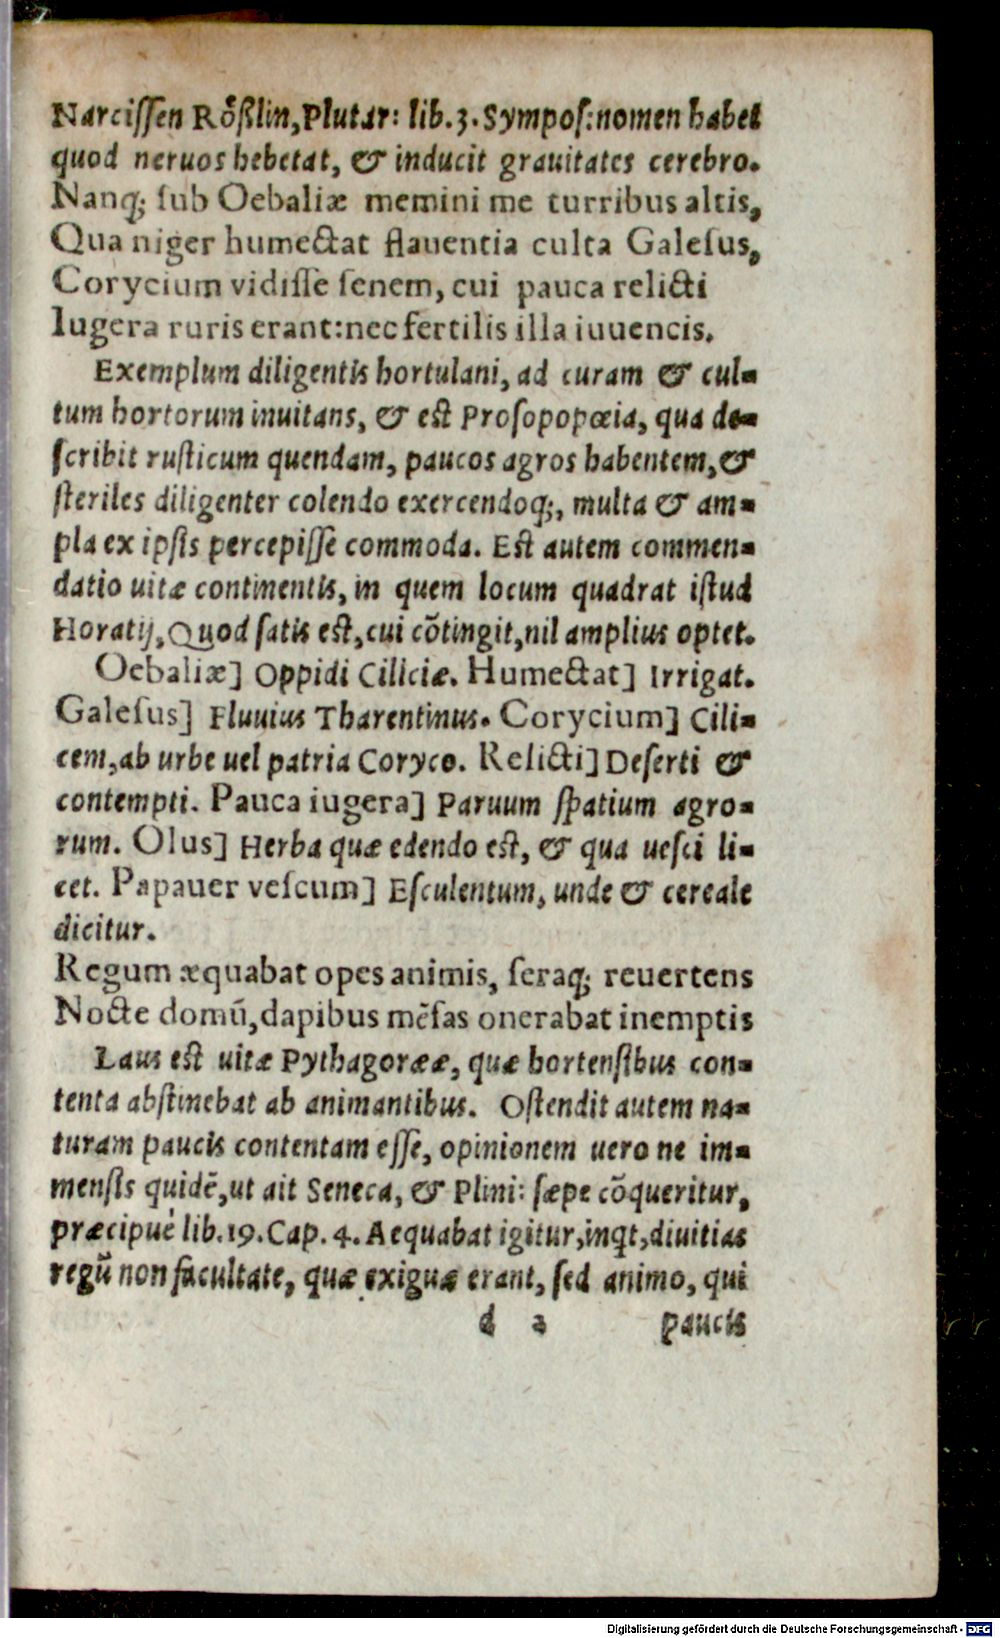 Narciſſen Roͤßlin, Plutar: lib. 3. Sympoſ: nomen habet
quod neruos hebetat, & inducit grauitates cerebro.
Nanq; ſub Oebaliæ memini me turribus altis,
Qua niger humectat flauentia culta Galeſus,
Corycium vidiſſe ſenem, cui pauca relicti
Iugera ruris erant: nec fertilis illa iuuencis.
Exemplum diligentis hortulani, ad curam & cul-
tum hortorum inuitans, & est Proſopopœia, qua de-
ſcribit ruſticum quendam, paucos agros habentem, &
ſteriles diligenter colendo exercendoq;, multa & am-
pla ex ipſis percepiſſe commoda. Est autem commen-
datio uitæ continentis, in quem locum quadrat iſtud
Horatij, Quod ſatis est, cui cõtingit, nil amplius optet.
Oebaliæ] Oppidi Ciliciæ. Humectat] Irrigat.
Galeſus] Fluuius Tharentinus. Corycium] Cili-
cem, ab urbe uel patria Coryco. Relicti] Deſerti &
contempti. Pauca iugera] Paruum ſpatium agro-
rum. Olus] Herba quæ edendo est, & qua ueſci li-
cet. Papauer veſcum] Eſculentum, unde & cereale
dicitur.
Regum æquabat opes animis, ſeraq; reuertens
Nocte domũ, dapibus mẽſas onerabat inemptis
Laus est uitæ Pythagorææ, quæ hortenſibus con-
tenta abſtinebat ab animantibus. Oſtendit autem na-
turam paucis contentam eſſe, opinionem uero ne im-
menſis quidẽ, ut ait Seneca, & Plini: ſæpe cõqueritur,
præcipuè lib. 19. Cap. 4. Aequabat igitur, inqt, diuitias
regũ non facultate, quæ exiguæ erant, ſed animo, qui
d 2 paucis
Digitalisierung gefördert durch die Deutsche Forschungsgemeinschaft - DFG